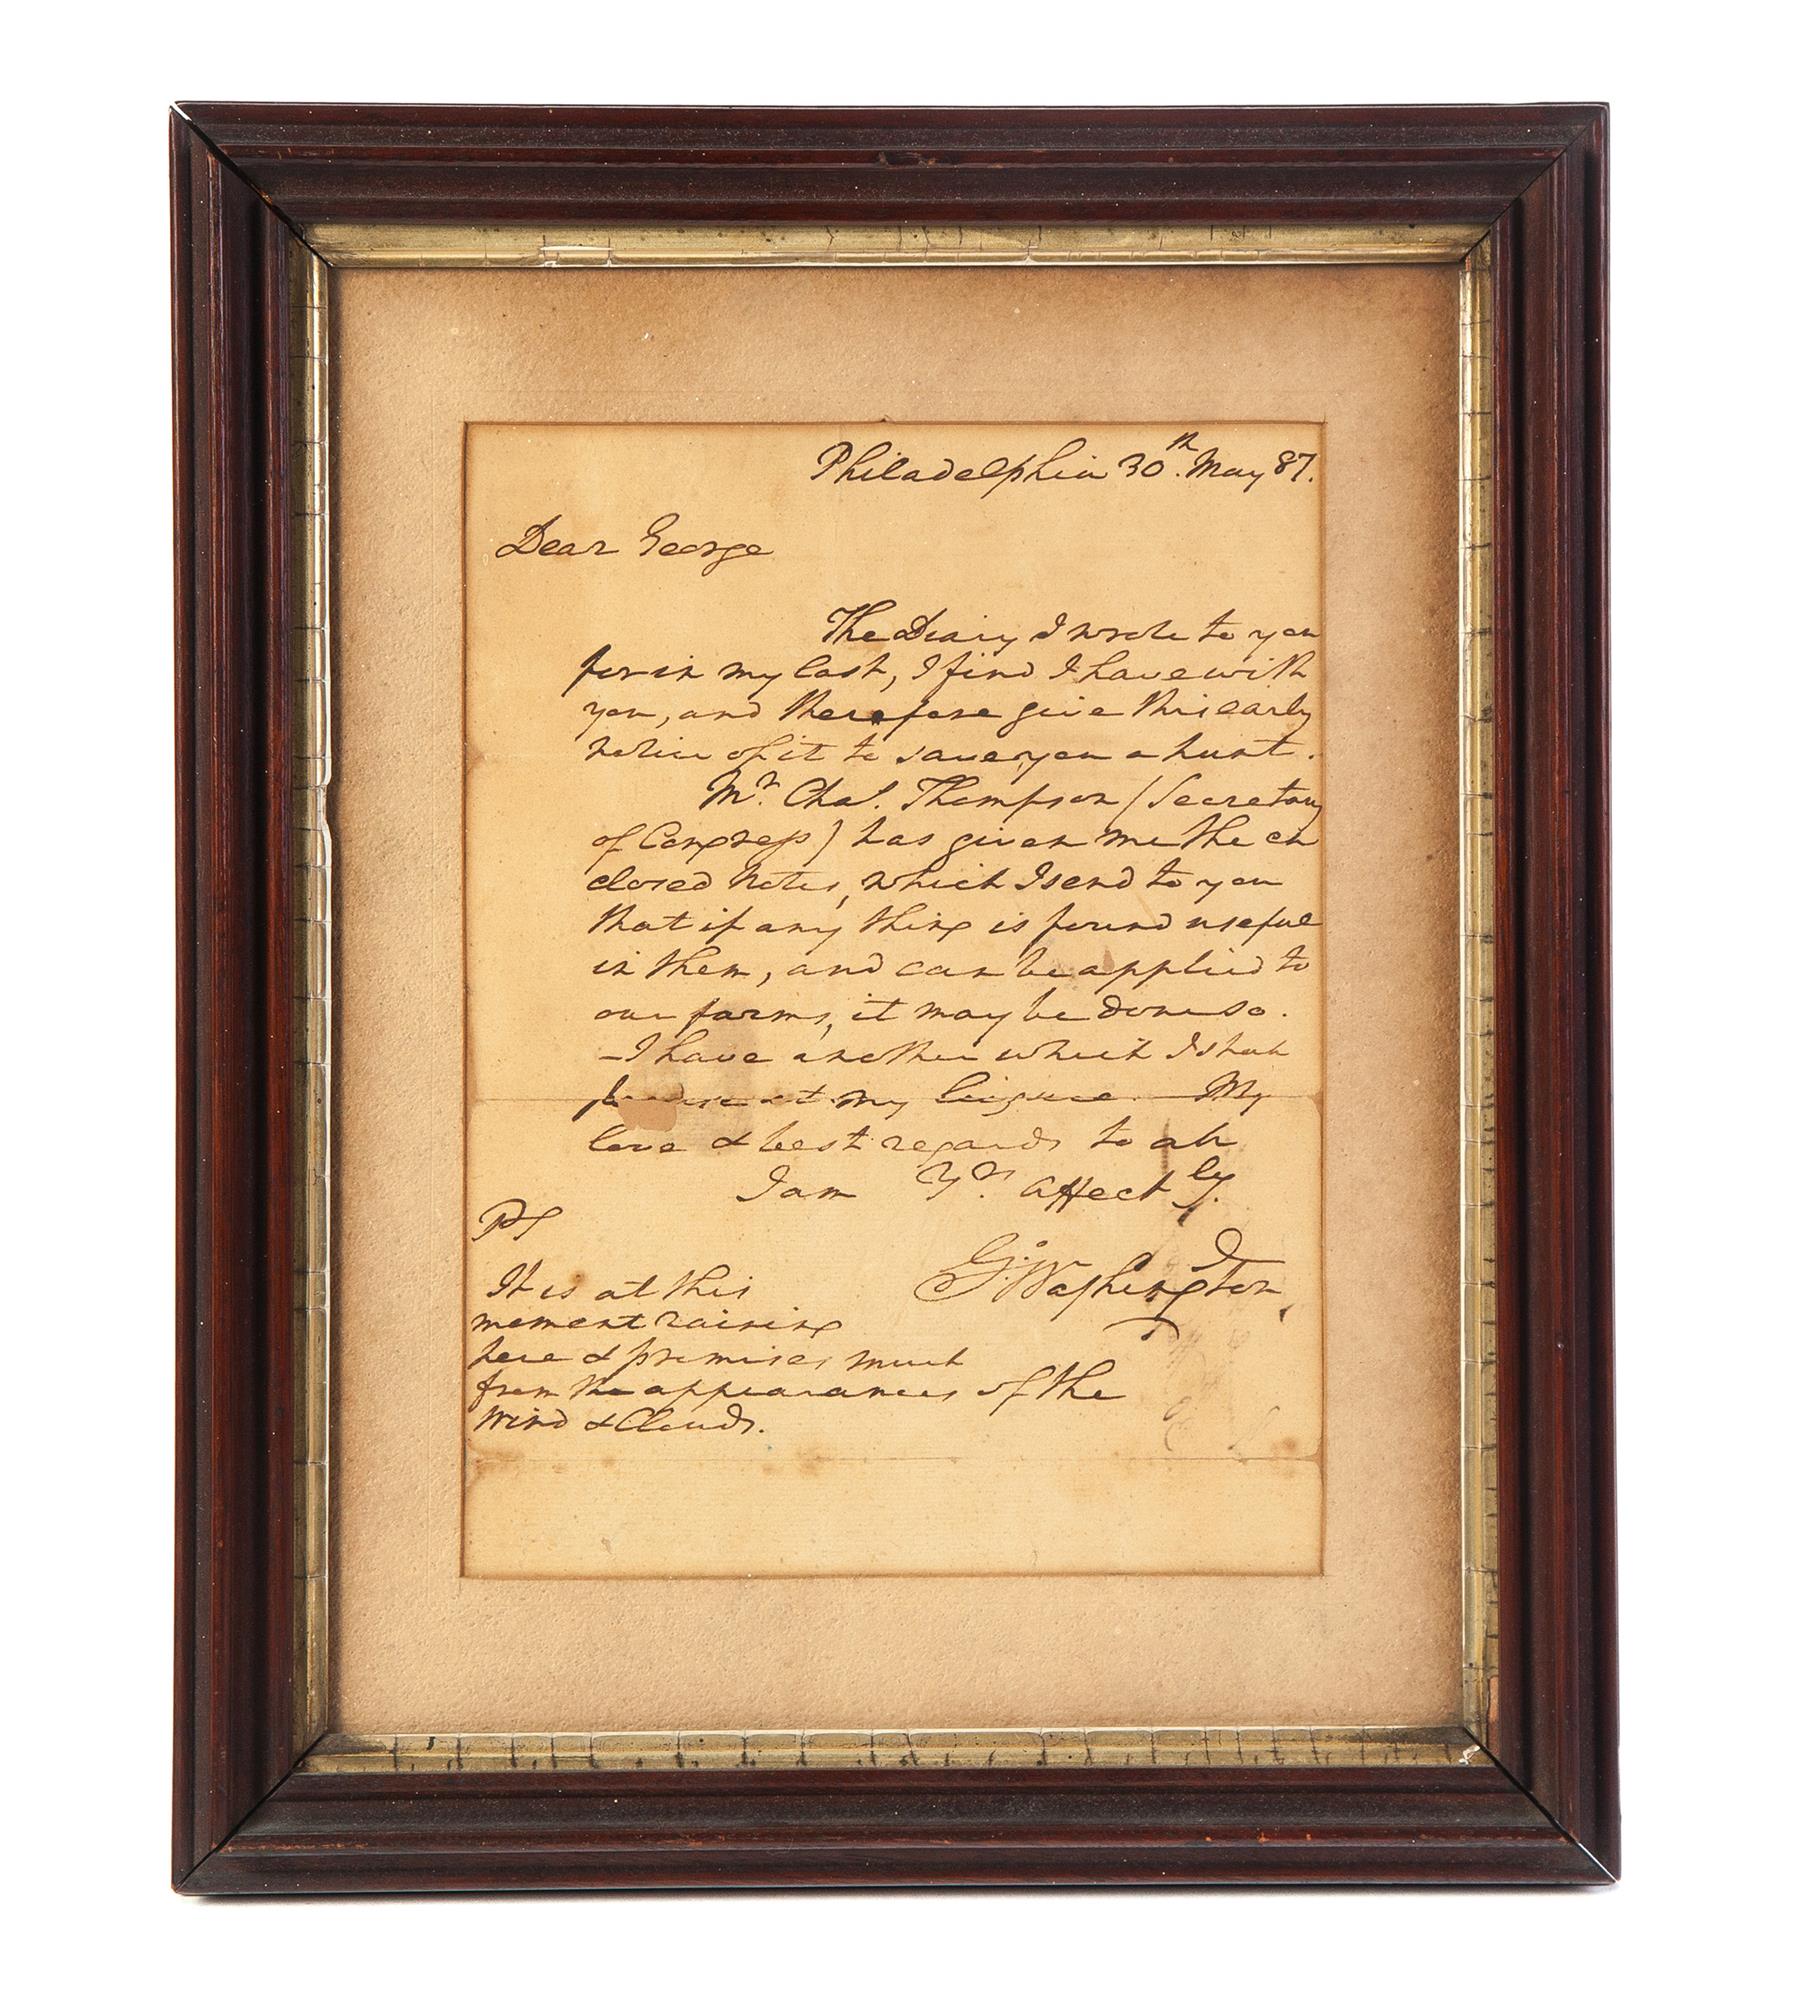 Philadelphia 30th. May 87.
Dear George
The Diary I wrote to you
for in my last, I find I have with
you, and therefore give this early
notice of it to save you a hunt.
Mr. Chas. Thompson (Secretary
of Congress) has given me the en
closed notes, which I send to you
that if any thing is found useful
in them, and can be applied to
our farms, it may be done so.
—I have another which I shall
peruse at my leizure. — My
love & best regards to all
I am Yr. Affectly.
G:Washington
PS
It is at this
moment raining
here & promises much
from the appearances of the
Wind & Clouds.